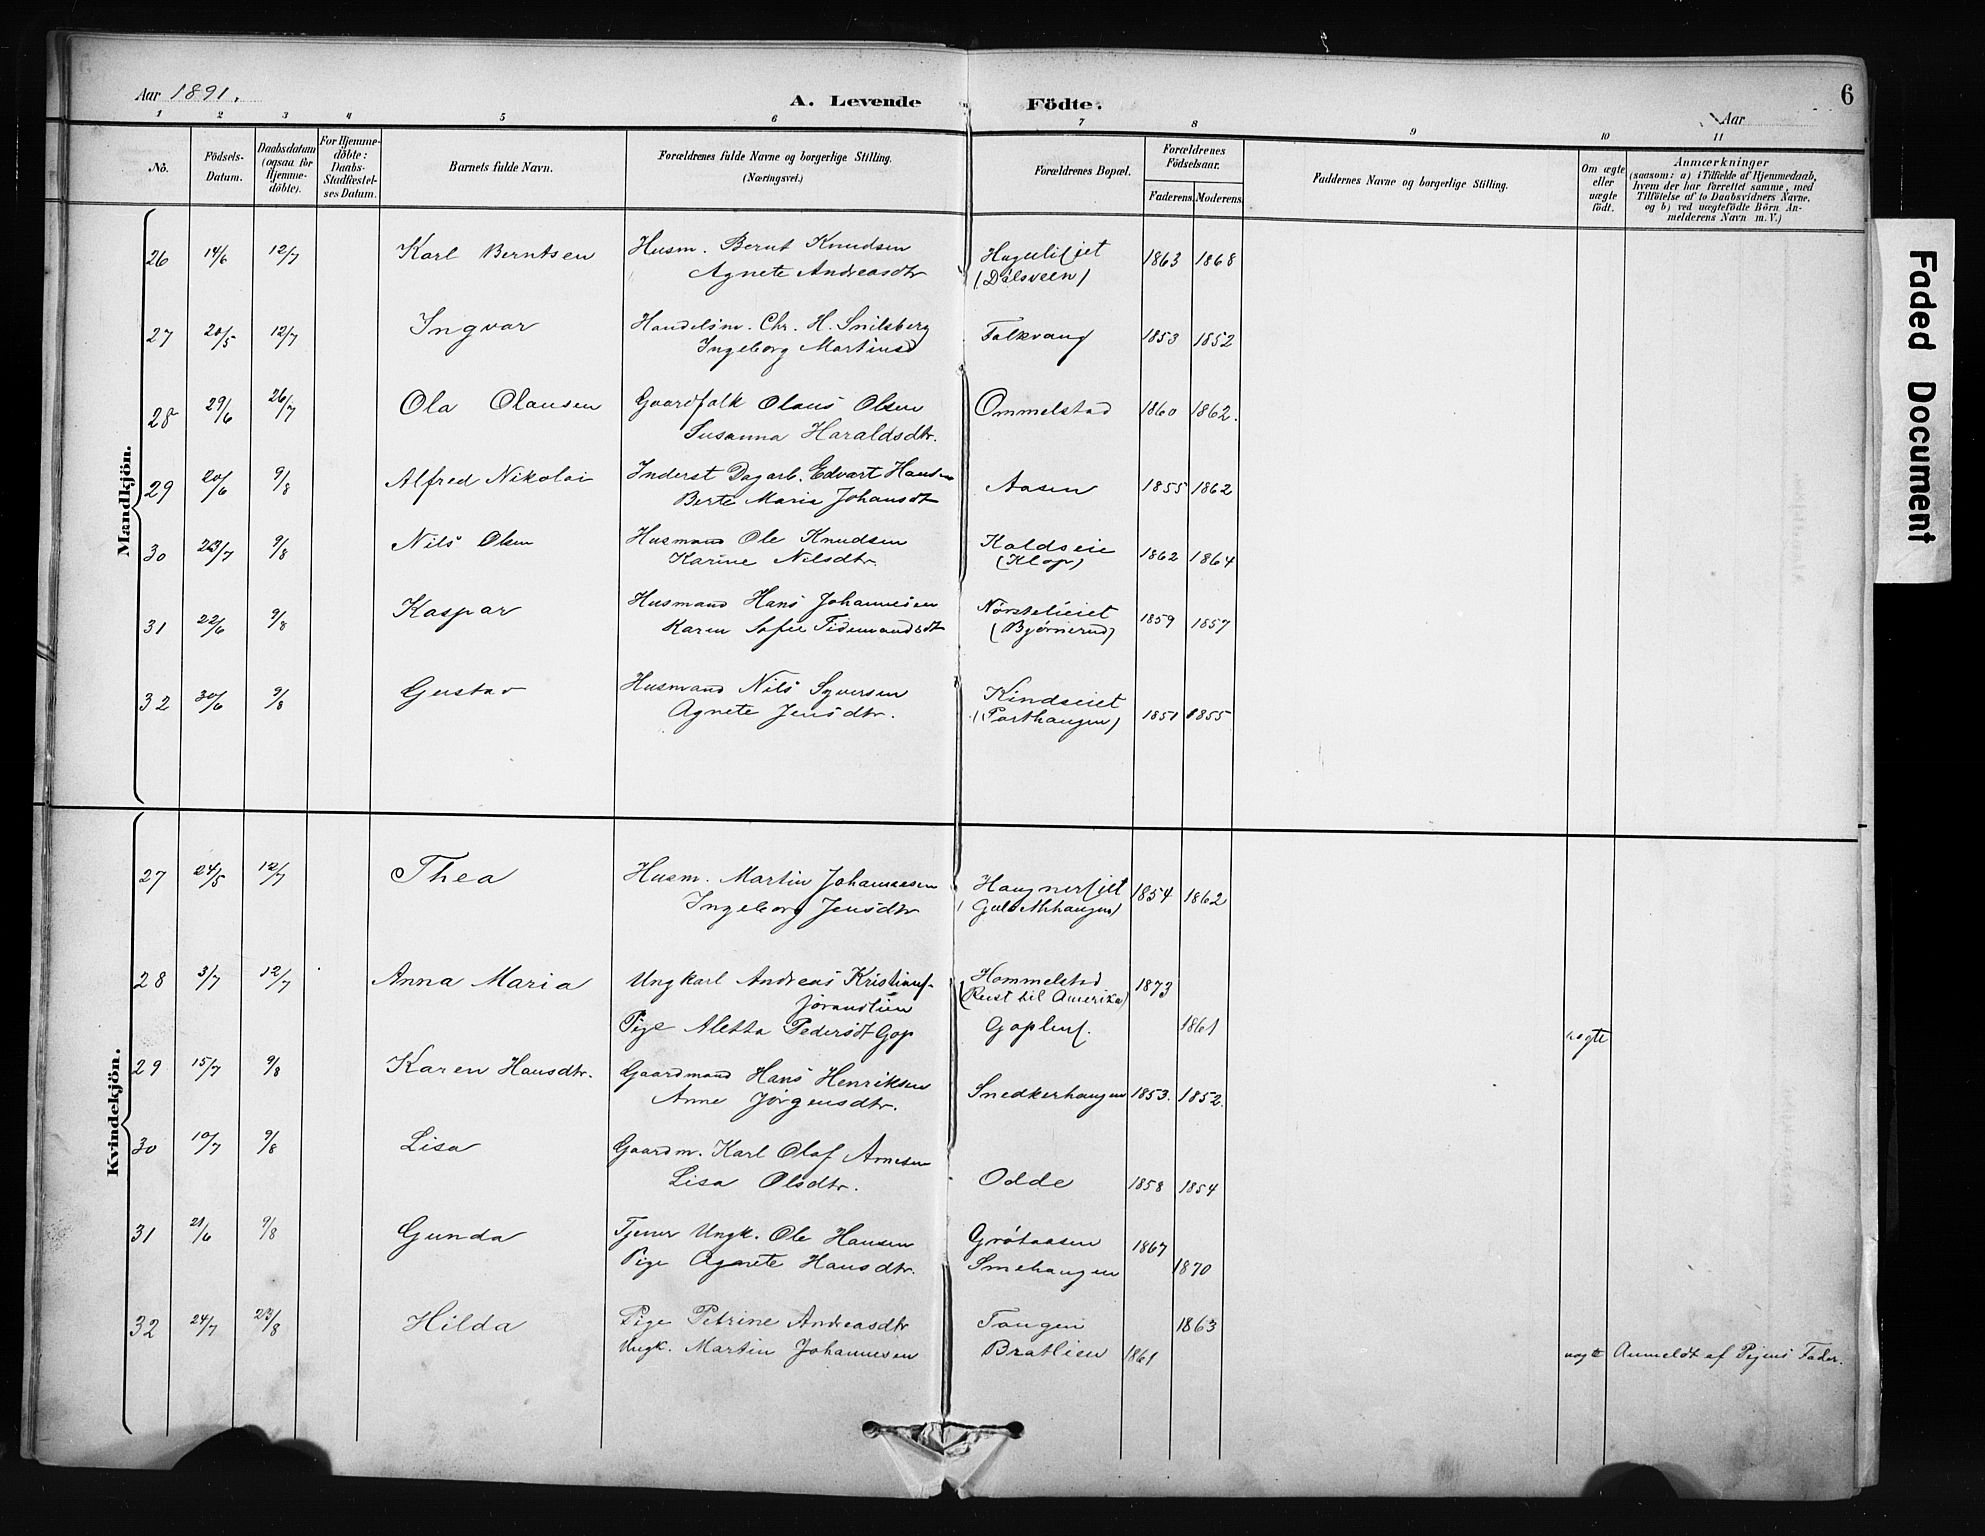 Aar 1891.
A. Levende Födte.
Aar
6
1 2 3 4 5 6 7 8 9 10 11
No.
Födsels-Datum.
Daabsdatum (ogsaa for Hjemme-döbte).
For Hjemme-döbte: Daabs-Stadfæstel-ses Datum.
Barnets fulde Navn.
Forældrenes fulde Navne og borgerlige Stilling. (Næringsvei.)
Forældrenes Bopæl.
Forældrenes Födselsaar.
Faderens. Moderens.
Faddernes Navne og borgerlige Stilling.
Om ægte eller uægte födt.
Anmærkninger
(saasom: a) i Tilfælde af Hjemmedaab,
hvem der har forrettet samme, med
Tilföielse af to Daabsvidners Navne,
og b) ved uægtefödte Börn An-
melderens Navn m. V.)
Mandkjön.
26 14/6 12/7 Karl Berntsen Husm. Bernt Knudsen 1863 1868
Agnete Andreasdtr (Dalsveen)
27 20/5 12/7 Ingvar Handelsm. Chr. H. Snilsberg Folkvang 1853 1852
Ingeborg Martinsd
28 29/6 26/7 Ola Olausen Gaardfolk Olaus Olsen Ommelstad 1860 1862.
Susanna Haraldsdtr.
29 20/6 9/8 Alfred Nikolai Inderst Dagarb. Edvart Hansen Aasen 1855 1862
Berte Maria Johansdt
30 23/7 9/8 Nils Olsen Husmand Ole Knudsen Koldseie 1862 1864
Karine Nilsdtr. (Klop)
31 22/6 9/8 Kaspar Husmand Hans Johannesen 1859 1857
Karen Sofie Tidemandsdt (Bjørnerud)
32 30/6 9/8 Gustav Husmand Nils Syversen Kindseiet 1851 1855
Agnete Jensdtr. (Porthaugen)
Kvindekjön.
27 24/5 12/7 Thea Husm. Martin Johannesen 1854 1862
Ingeborg Jensdtr
28 3/7 12/7 Anna Maria Ungkarl Andreas Kristians. Hommelstad 1873
Jørandlien (Reist til Amerika)
Pige Aletta Pedersdt Gop 1861 uægte
29 15/7 9/8 Karen Hansdtr. Gaardmand Hans Henriksen Snedkerhaugen 1853. 1852.
Anne Jørgensdtr.
30 10/7 9/8 Lisa Gaardm. Karl Olaf Arnesen
Lisa Olsdtr. Odde 1858 1854
31 21/6 9/8 Gunda Tjener Ungk. Ole Hansen Grøtaasen 1867
Pige Agnete Hansdtr. Smehaugen 1870
32 24/7 23/8 Hilda Pige Petrine Andreasdtr Tangen 1863
Ungk. Martin Johannesen Bratlien 1861 uægte Anmeldt af Pigens Fader.
Faded Document